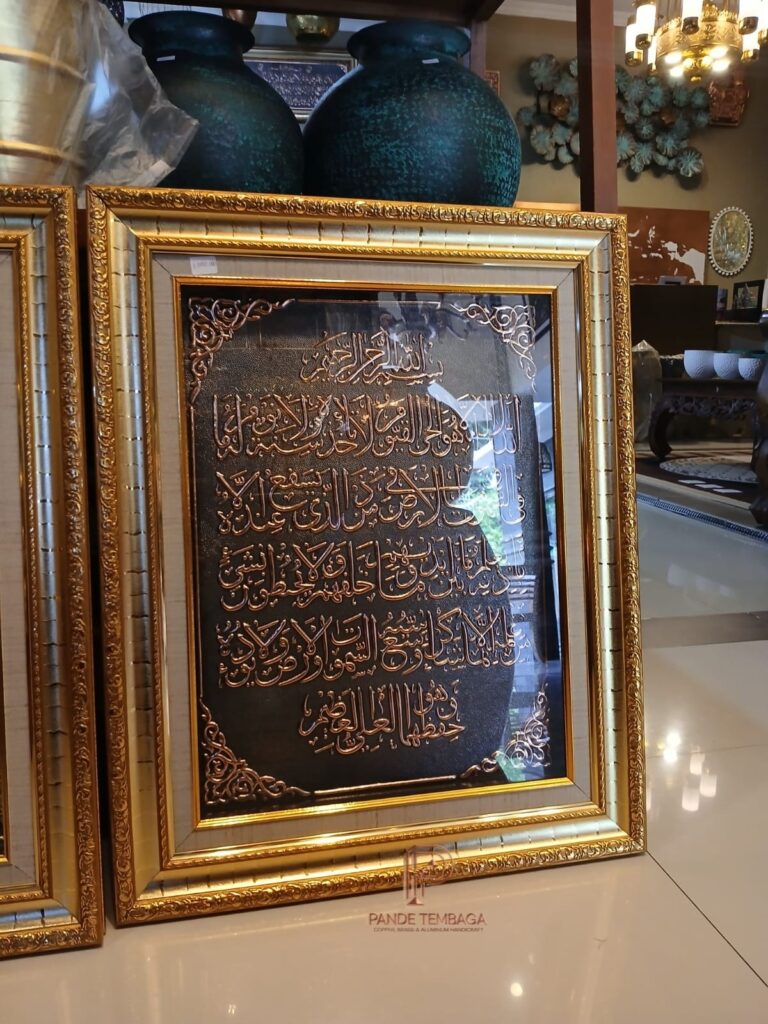 بسم الله الرحمن الرحيم
الله لا إله إلا هو الحي القيوم لا تأخذه سنة ولا نوم له ما
في السموت وما في الارض من ذا الذي يشفع عنده الا
باذنه يعلم ما بين ايديهم وما خلفهم ولا يحيطون بشيء
من علمه الا بما شاء وسع كرسيه السموت والارض ولا يؤده
حفظهما وهو العلي العظيم
PANDE TEMBAGA
COPPER, BRASS & ALUMINIUM HANDICRAFT